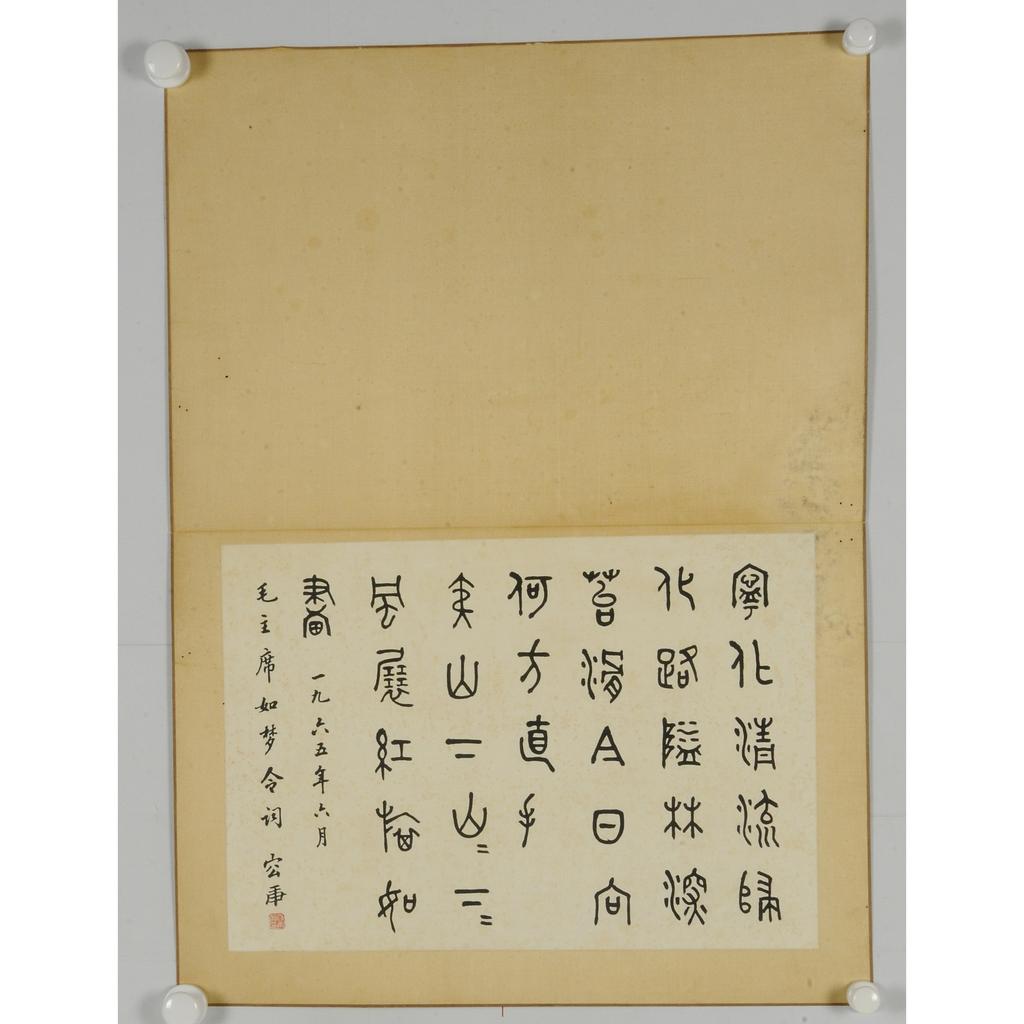 寧化清流歸
化路隘林深
苔滑今日向
何方直手
夷山下山〻下〻
風展紅旗如
畫 一九六五年六月
毛主席如梦令词 容庚